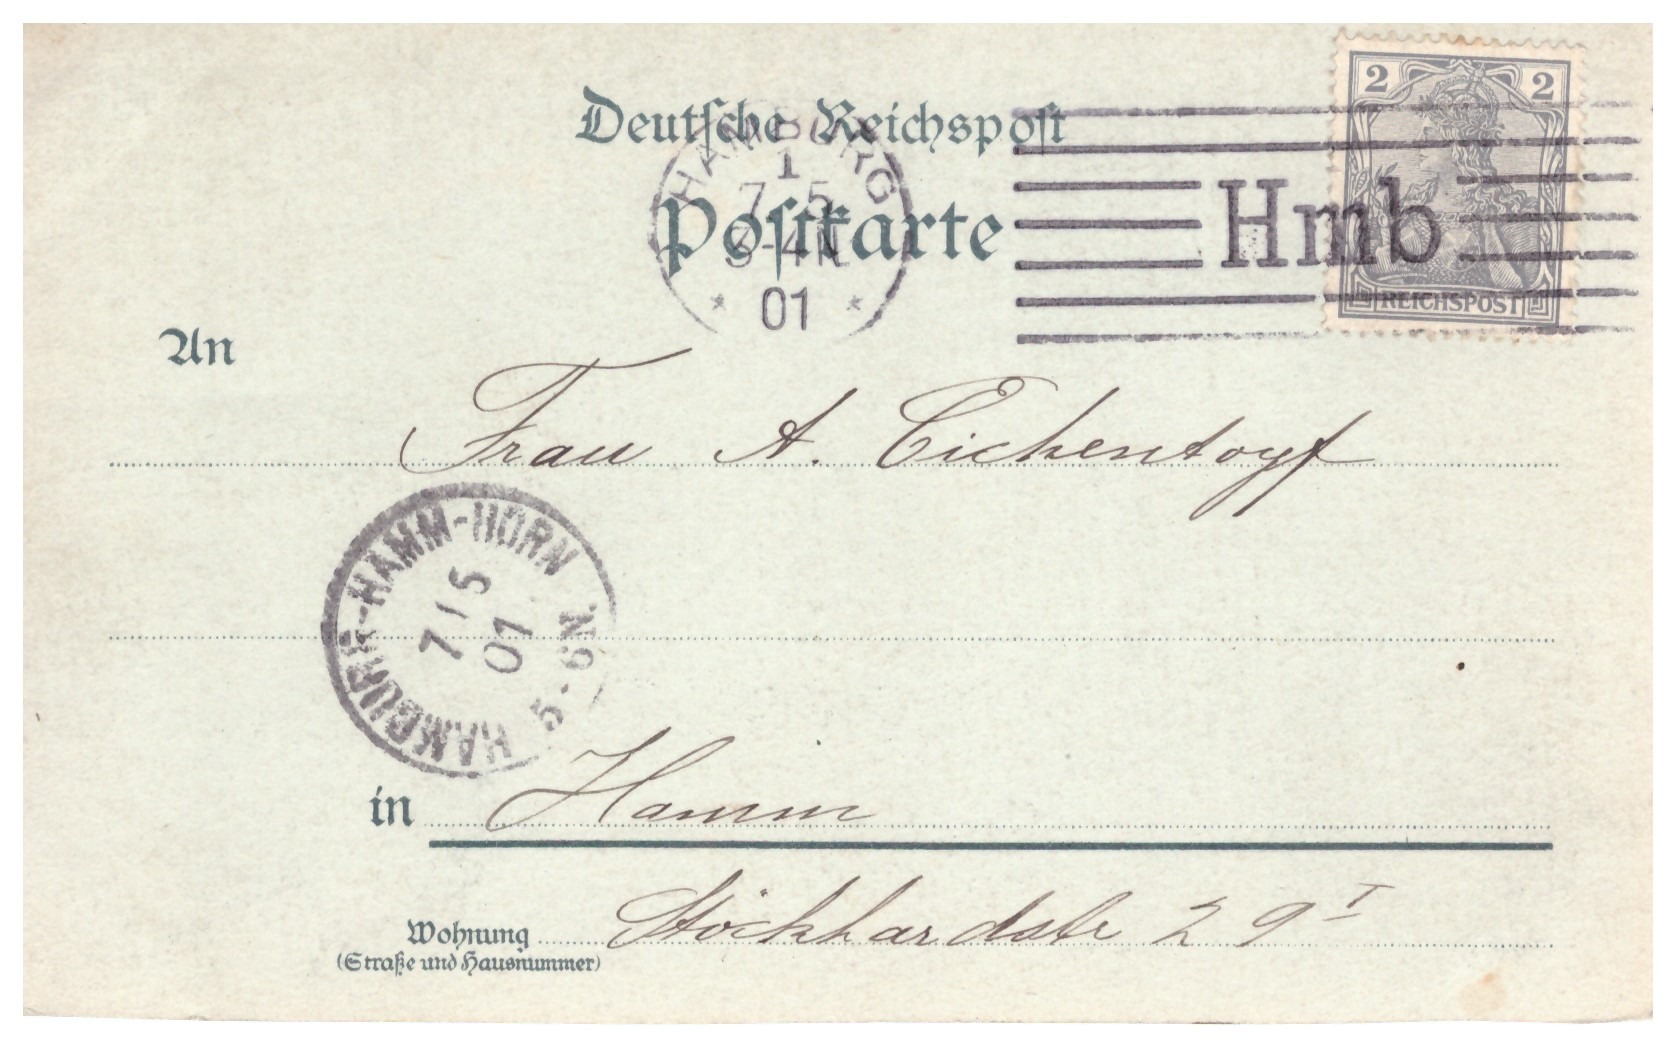 2 2
Deutsche Reichspost
HAMBURG
1
7. 5
3-4 N
* 01 *
Postkarte
Hmb
REICHSPOST
An
Frau A. Eichentopf
HAMBURG-HAMM-HORN
7/5
01
5-6N
in Hamm
Wohnung Stöckhardtstr 29 I
(Straße und Hausnummer)